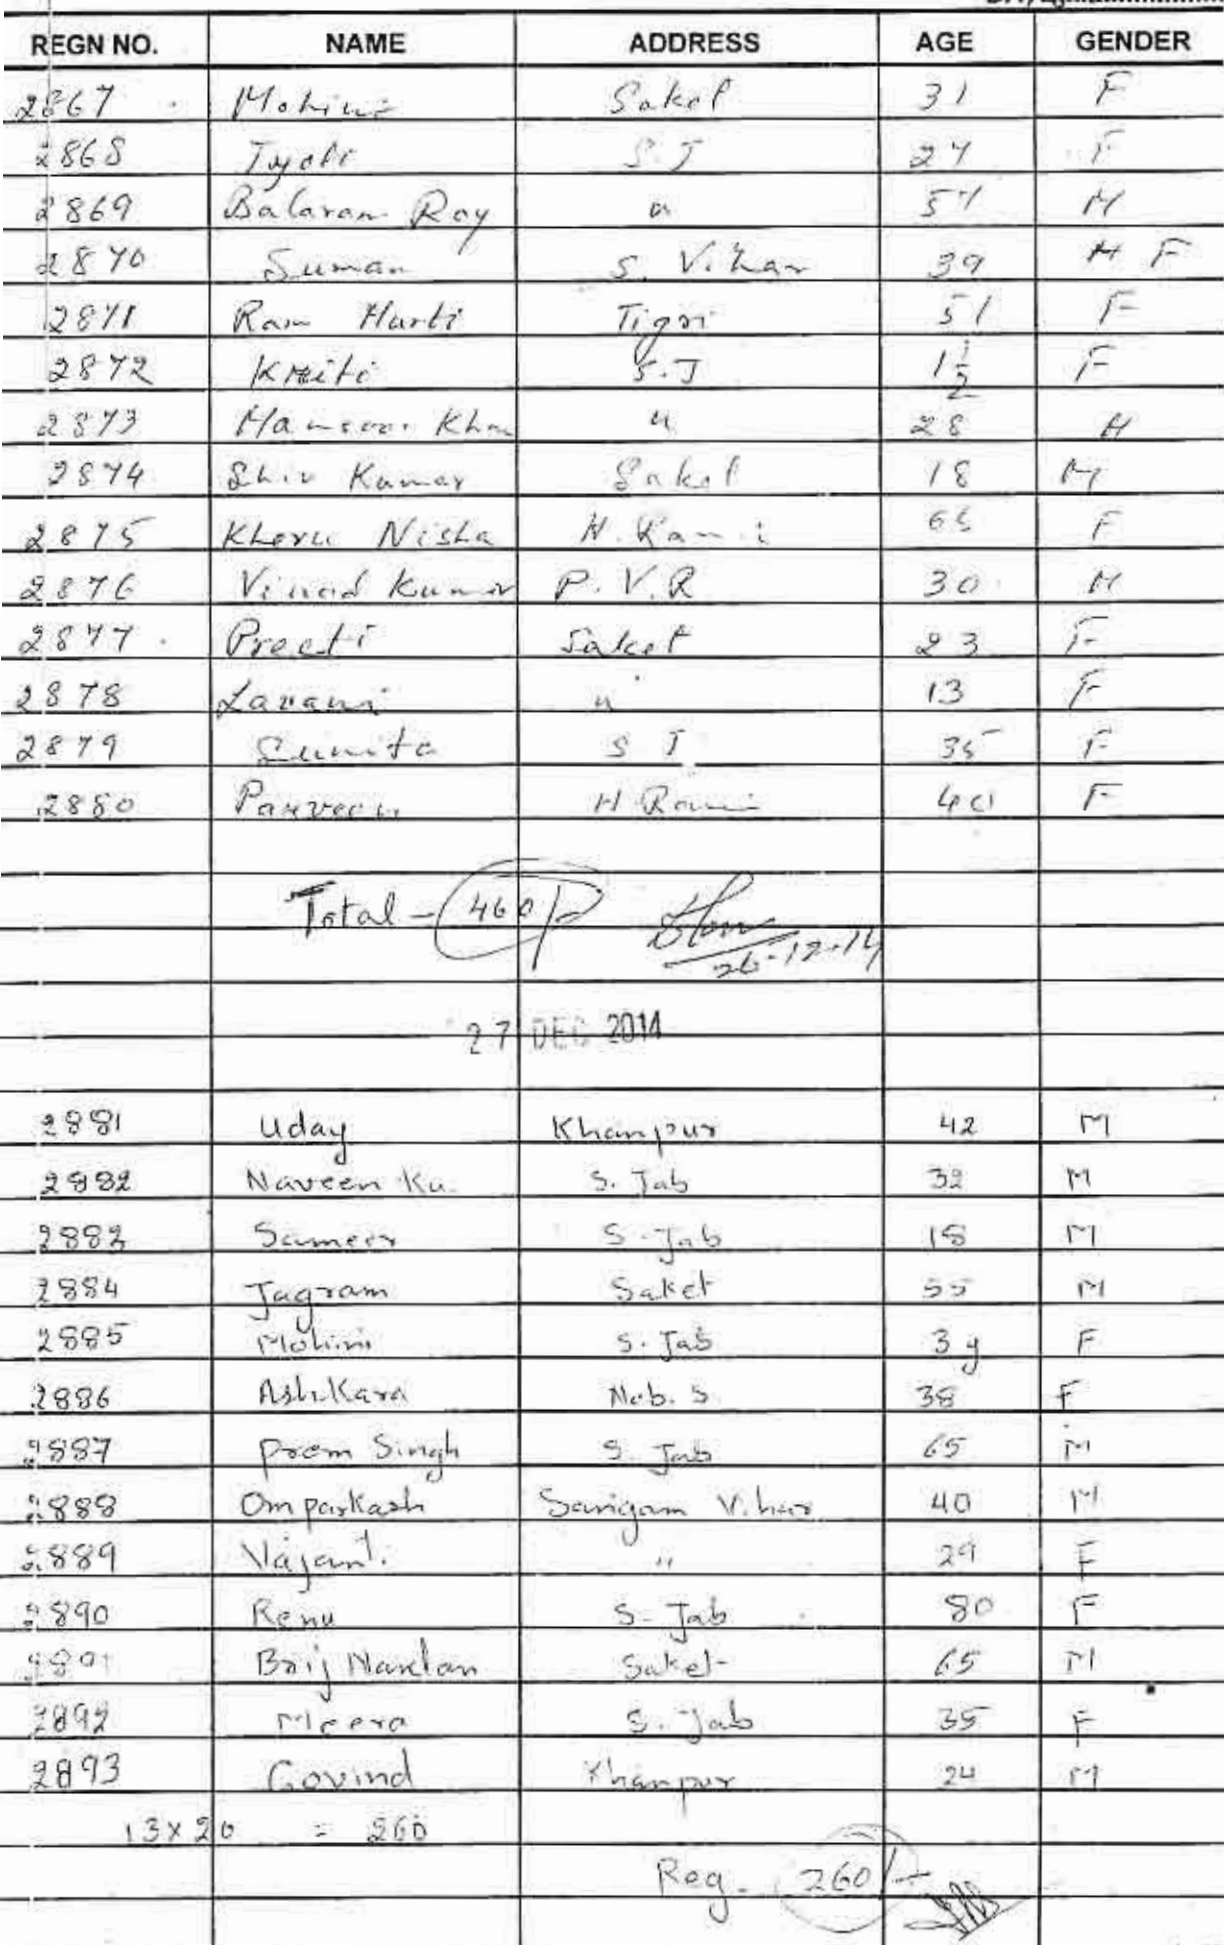 REGN NO. NAME ADDRESS AGE GENDER
2867 Mohini Saket 31 F
2868 Jyoti S.J 27 F
2869 Balaram Roy " 57 M
2870 Suman S. Vihar 39 F
2871 Ram Murti Tigri 51 F
2872 Kriti S.J 1½ F
2873 Mansoor Khan " 28 M
2874 Shiv Kumar Saket 18 M
2875 Kheru Nisha H. Rani 65 F
2876 Vinod Kumar P.V.R 30 M
2877 Preeti Saket 23 F
2878 " 13 F
2879 Sunita S J 35 F
2880 Parveen H Rani 40 F
Total - 460/-
26-12-14
27 DEC 2014
2881 Uday Khanpur 42 M
2882 Naveen Ku. S. Jab 32 M
2882 Sameer S. Jab 18 M
2884 Jagram Saket 55 M
2885 Mohini S. Jab 3 y F
2886 Ashkara Neb. S 38 F
2887 Prem Singh S. Jab 65 M
2888 Omparkash Sangam Vihar 40 M
2889 Vajanti " 29 F
2890 Renu S. Jab 80 F
2891 Brij Nandan Saket 65 M
2892 Meera S. Jab 35 F
2893 Govind Khanpur 24 M
13 x 20 = 260
Reg. 260/-